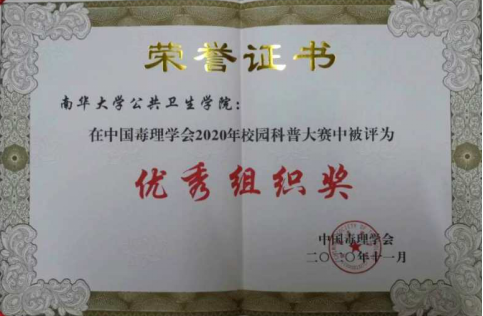 荣誉证书
南华大学公共卫生学院：
在中国毒理学会2020年校园科普大赛中被评为
优秀组织奖
中国毒理学会
二〇二〇年十一月